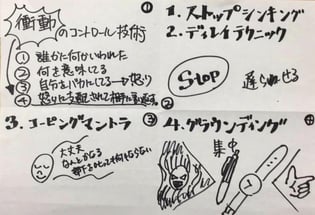 ①
衝動のコントロール技術
① 誰かに何かいわれた
② 何を意味してる
③ 自分をバカにしてる→怒り
④ 怒りに支配されて相手に
1. ストップシンキング
2. ディレイテクニック
Stop
遅らせる
②
3. コーピングマントラ
③
大丈夫
なんとかなる
4. グラウンディング
④
集中